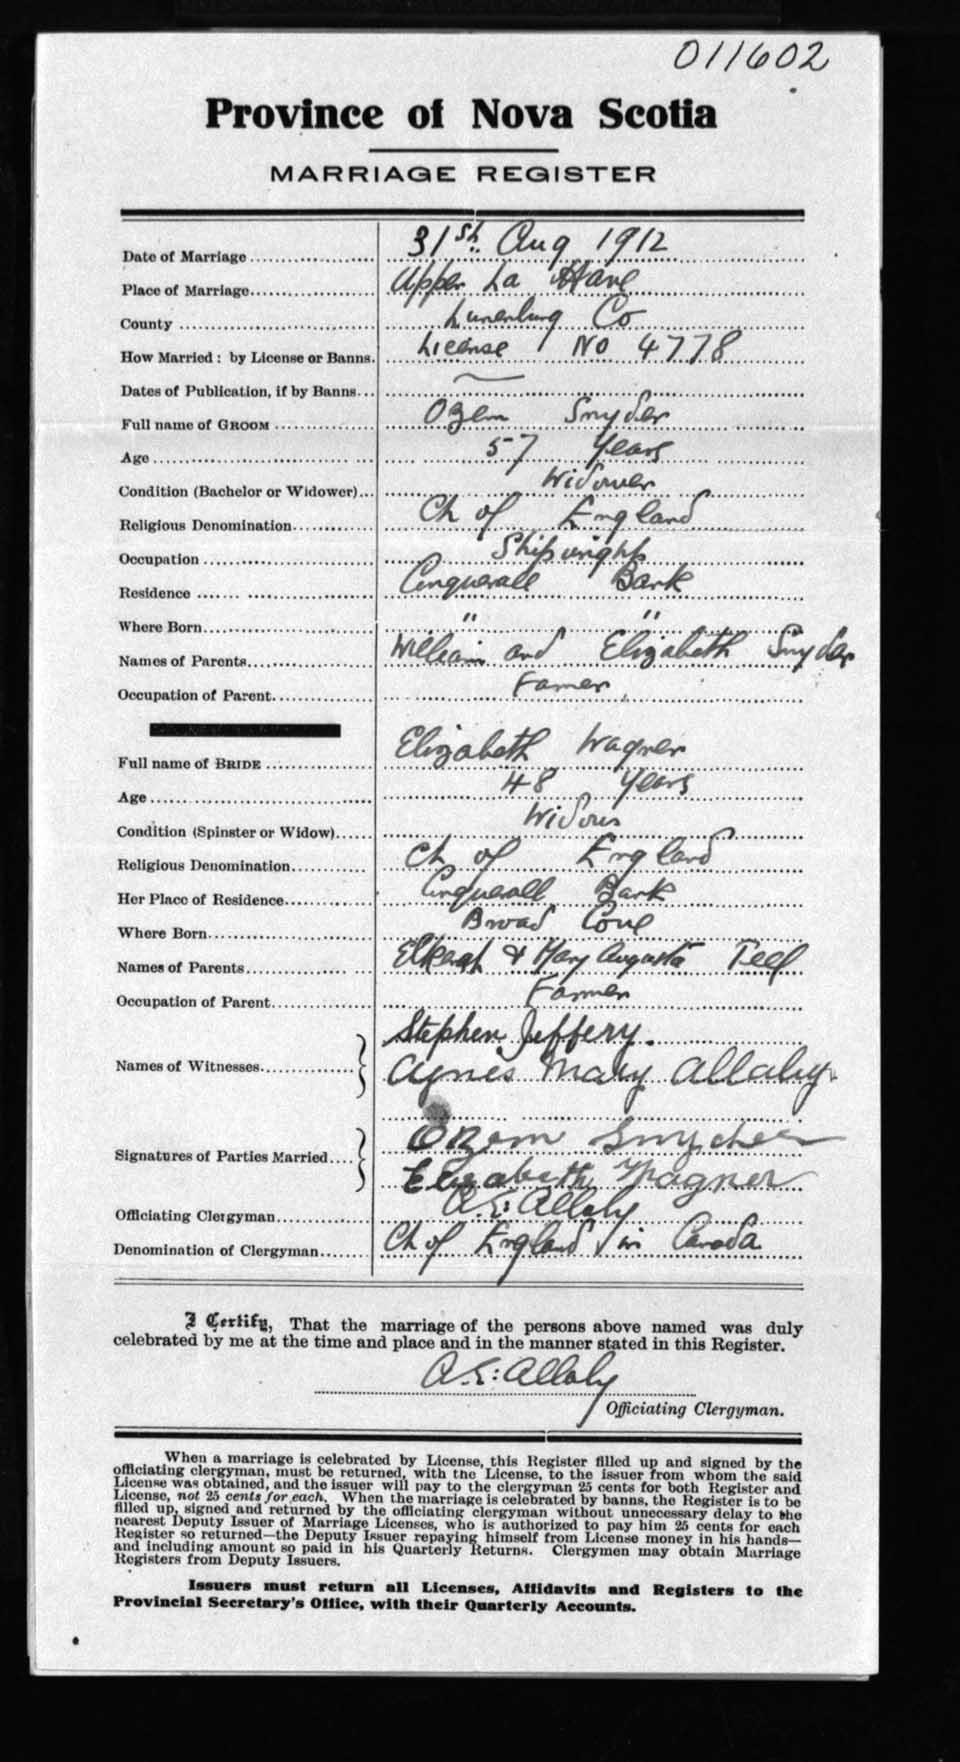 011602
Province of Nova Scotia
MARRIAGE REGISTER
Date of Marriage 31st Aug 1912
Place of Marriage Upper La Have
County Lunenburg Co
How Married: by License or Banns. License No 4778
Dates of Publication, if by Banns —
Full name of GROOM Ozem Snyder
Age 57 Years
Condition (Bachelor or Widower) Widower
Religious Denomination Ch of England
Occupation Shipwright
Residence Conquerall Bank
Where Born " "
Names of Parents William and Elizabeth Snyder
Occupation of Parent Farmer
Full name of BRIDE Elizabeth Wagner
Age 48 Years
Condition (Spinster or Widow) Widow
Religious Denomination Ch of England
Her Place of Residence Conquerall Bank
Where Born Broad Cove
Names of Parents & Mary Augusta Teel
Occupation of Parent Farmer
Names of Witnesses Stephen Jeffery.
Agnes Mary Allaby
Signatures of Parties Married Ozem Snyder
Elizabeth Wagner
Officiating Clergyman A.E: Allaby
Denomination of Clergyman Ch of England in Canada
I Certify, That the marriage of the persons above named was duly
celebrated by me at the time and place and in the manner stated in this Register.
A.E: Allaby
Officiating Clergyman.
When a marriage is celebrated by License, this Register filled up and signed by the
officiating clergyman, must be returned, with the License, to the issuer from whom the said
License was obtained, and the issuer will pay to the clergyman 25 cents for both Register and
License, not 25 cents for each. When the marriage is celebrated by banns, the Register is to be
filled up, signed and returned by the officiating clergyman without unnecessary delay to the
nearest Deputy Issuer of Marriage Licenses, who is authorized to pay him 25 cents for each
Register so returned—the Deputy Issuer repaying himself from License money in his hands—
and including amount so paid in his Quarterly Returns. Clergymen may obtain Marriage
Registers from Deputy Issuers.
Issuers must return all Licenses, Affidavits and Registers to the
Provincial Secretary's Office, with their Quarterly Accounts.